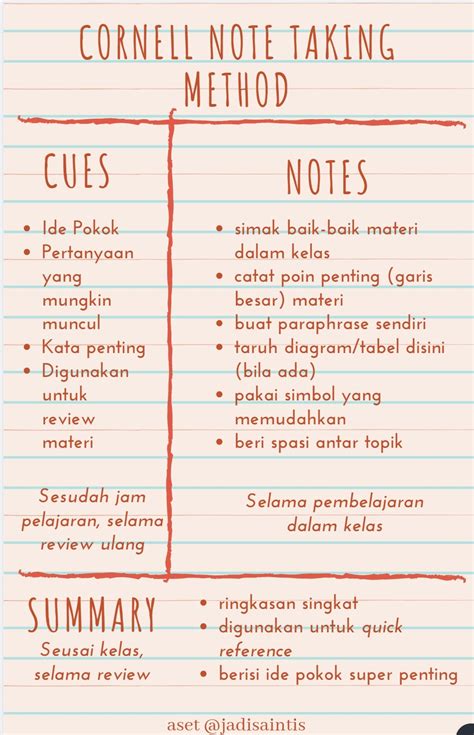 CORNELL NOTE TAKING
METHOD
CUES
• Ide Pokok
• Pertanyaan
yang
mungkin
muncul
• Kata penting
• Digunakan
untuk
review
materi
Sesudah jam
pelajaran, selama
review ulang
NOTES
• simak baik-baik materi
dalam kelas
• catat poin penting (garis
besar) materi
• buat paraphrase sendiri
• taruh diagram/tabel disini
(bila ada)
• pakai simbol yang
memudahkan
• beri spasi antar topik
Selama pembelajaran
dalam kelas
SUMMARY
Seusai kelas,
selama review
• ringkasan singkat
• digunakan untuk quick
reference
• berisi ide pokok super penting
aset @jadisaintis